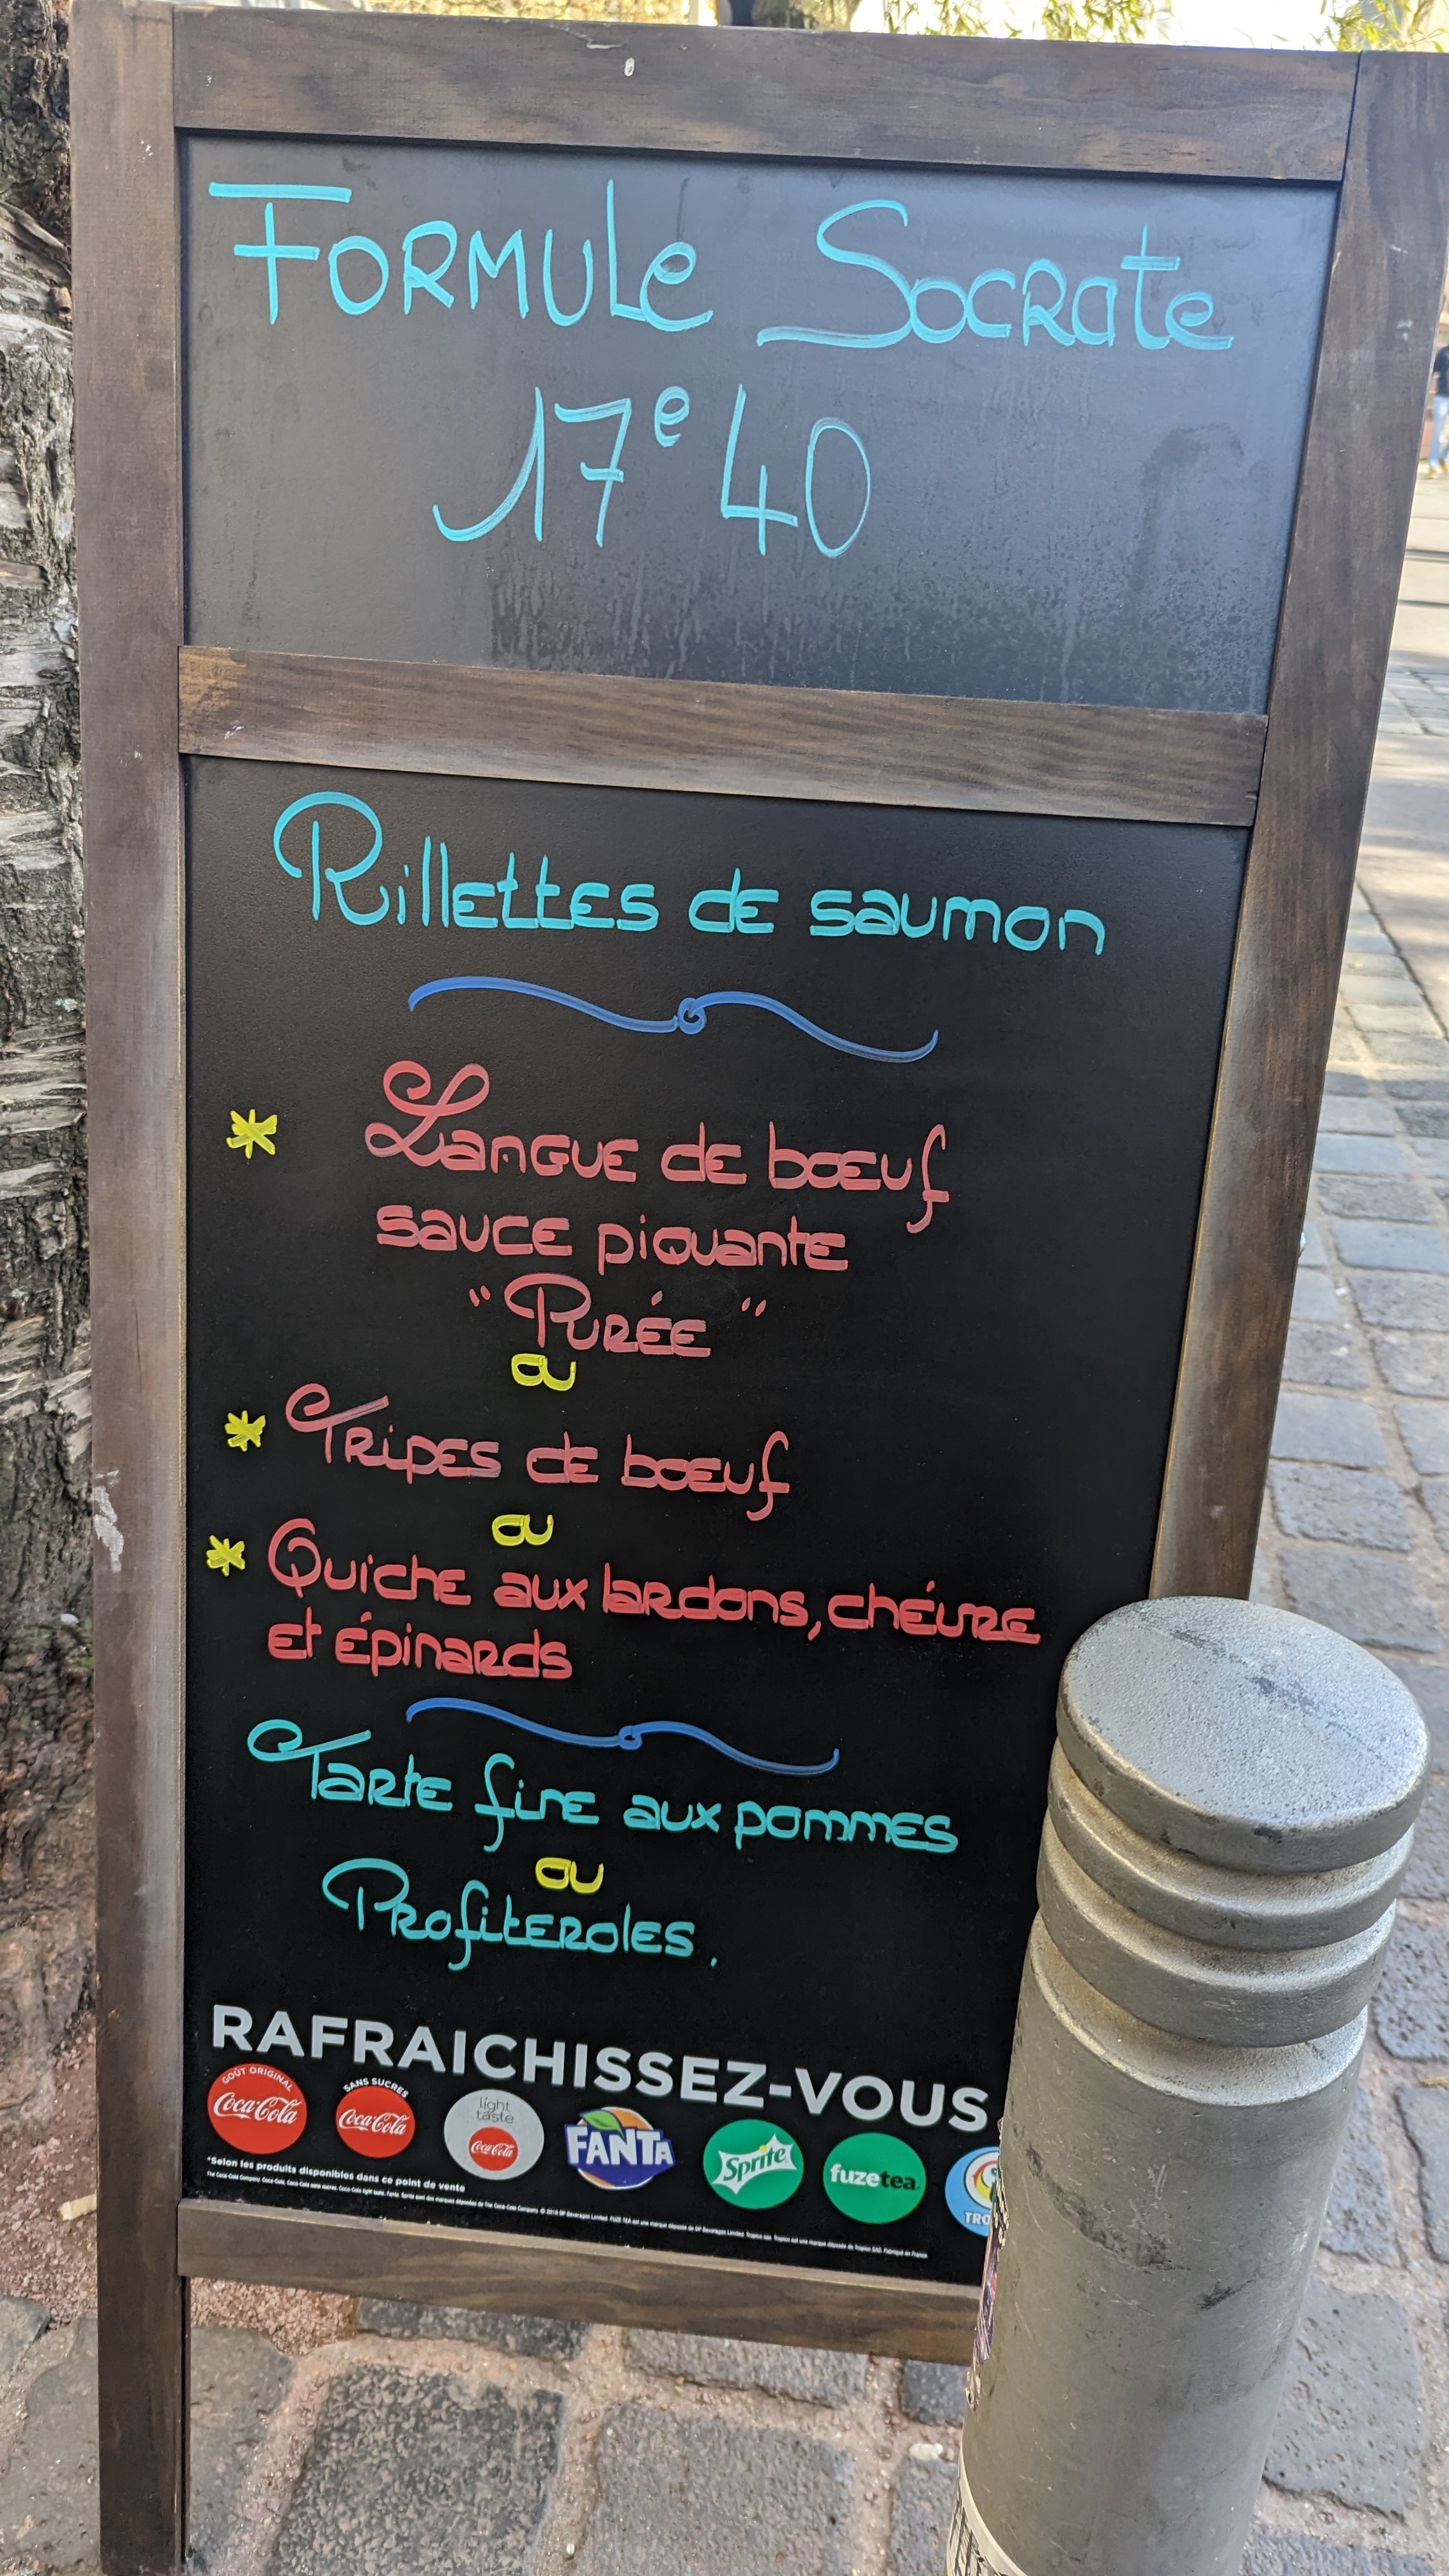 FORMULe SOCRate
17e40
Rillettes de saumon
* Langue de bœuf
sauce piquante
"Purée"
ou
* Tripes de bœuf
ou
* Quiche aux lardons, chévre
et épinards
Tarte fine aux pommes
ou
Profiteroles.
RAFRAICHISSEZ-VOUS
GOÛT ORIGINAL
Coca-Cola
SANS SUCRES
Coca-Cola
light
taste
Coca-Cola
FANTA
Sprite
fuzetea
TRO
*Selon les produits disponibles dans ce point de vente